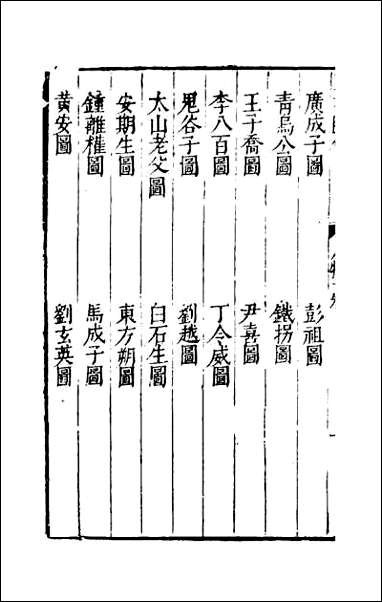 廣成子圖　彭祖圖
青烏公圖　鐵拐圖
王子喬圖　尹喜圖
李八百圖　丁令威圖
鬼谷子圖　劉越圖
太山老父圖　白石生圖
安期生圖　東方朔圖
鍾離權圖　馬成子圖
黄安圖　劉玄英圖